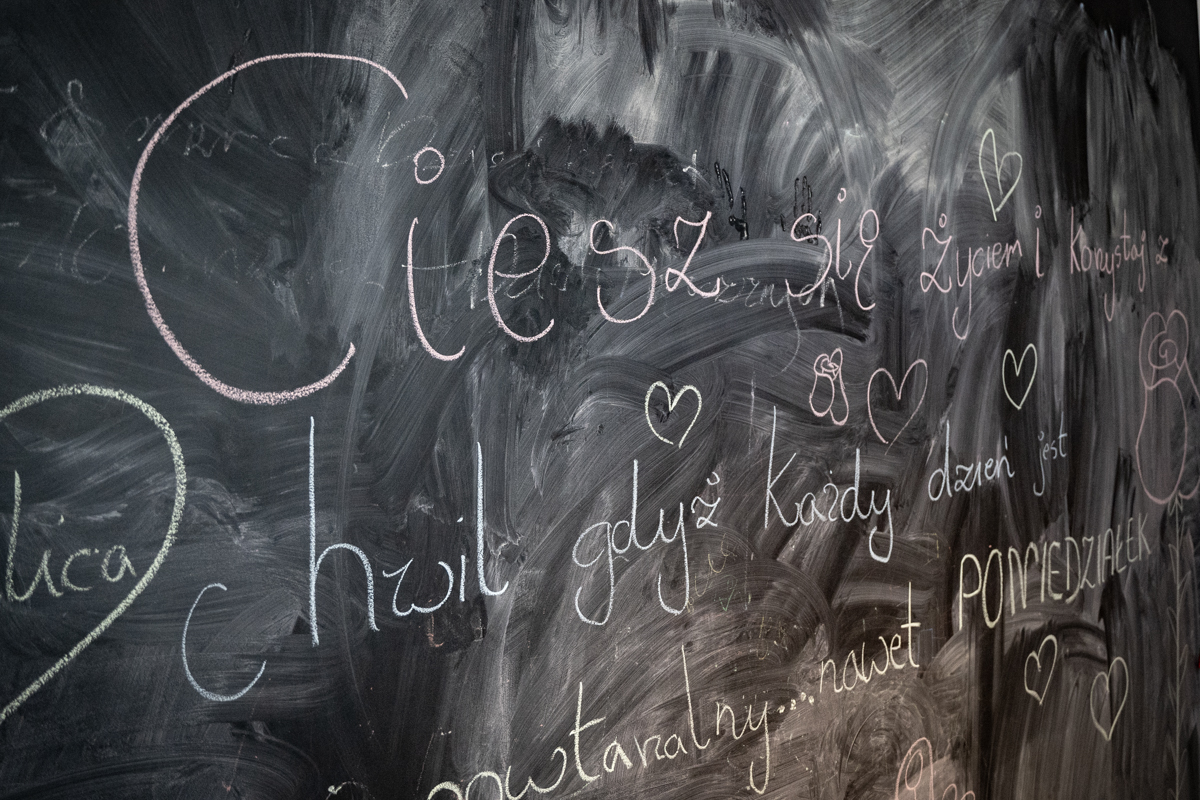 Ciesz się życiem i korzystaj z
lica
Chwil gdyż każdy dzień jest
powtarzalny...nawet PONIEDZIAŁEK